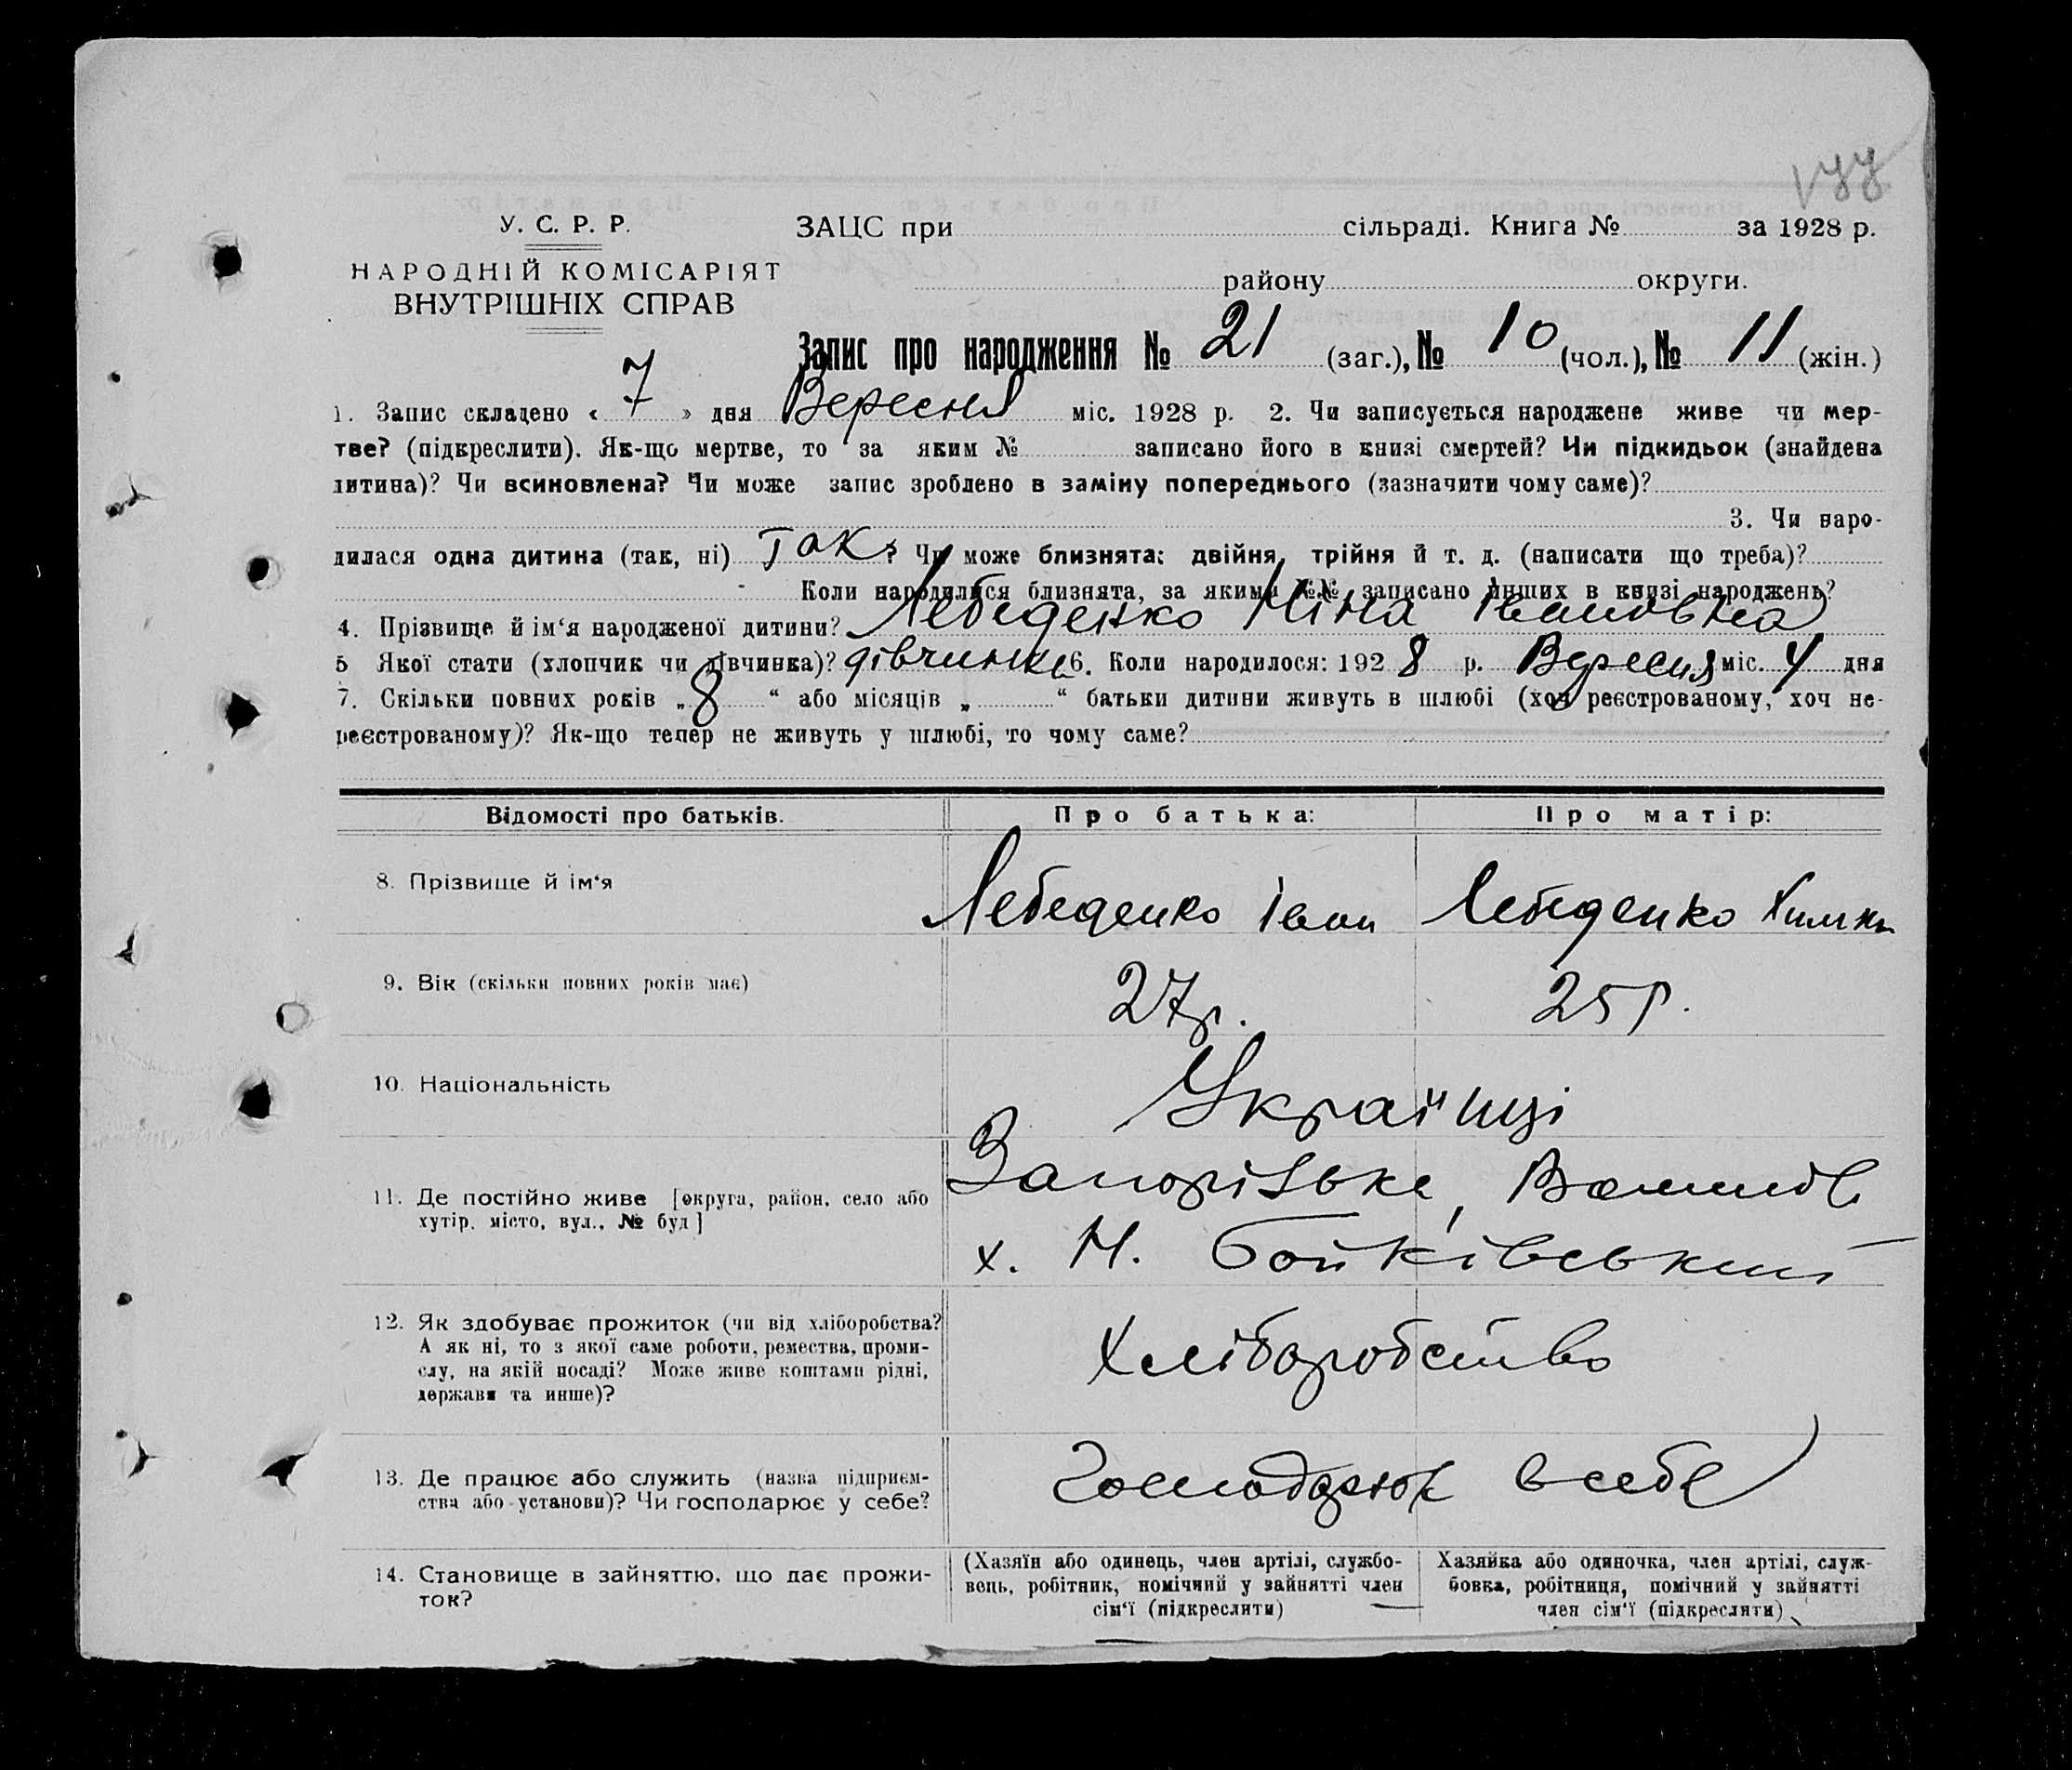 У. С. Р. Р. ЗАЦС при сільраді. Книга № за 1928 р.
НАРОДНІЙ КОМІСАРІЯТ
району округи.
ВНУТРІШНІХ СПРАВ
Запис про народження № 21 (заг.), № 10 (чол.), № 11 (жін.)
1. Запис складено « 7 » дня Вересня міс. 1928 р. 2. Чи записується народжене живе чи мер-
тве? (підкреслити). Як-що мертве, то за яким № записано його в книзі смертей? Чи підкидьок (знайдена
дитина)? Чи всиновлена? Чи може запис зроблено в заміну попереднього (зазначити чому саме)?
3. Чи наро-
дилася одна дитина (так, ні) Так ? Чи може близнята: двійня, трійня й т. д. (написати що треба)?
Коли народилися близнята, за якими №№ записано инших в книзі народжень?
4. Прізвище й ім‘я народженої дитини? Лебеденко Ніна Івановна
5 Якої стати (хлопчик чи дівчинка)? дівчинка 6. Коли народилося: 192 8 р. Вересня міс. 4 дня
7. Скільки повних років „ 8 “ або місяців „ “ батьки дитини живуть в шлюбі (хоч реєстрованому, хоч не-
реєстрованому)? Як-що тепер не живуть у шлюбі, то чому саме?
Відомості про батьків. Про батька: Про матір:
8. Прізвище й ім‘я Лебеденко Іван Лебеденко
9. Вік (скільки повних років має) 27р. 25 р.
10. Національність Українці
11. Де постійно живе [округа, район, село або Запорізьке,
хутір, місто, вул., № буд] х. Н. Бойківський
12. Як здобуває прожиток (чи від хліборобства? Хліборобство
А як ні, то з якої саме роботи, ремества, проми-
слу, на якій посаді? Може живе коштами рідні,
держави та инше)?
13. Де працює або служить (назва підприєм- в себе
ства або установи)? Чи господарює у себе?
14. Становище в зайняттю, що дає прожи- (Хазяїн або одинець, член артілі, службо- Хазяйка або одиночка, член артілі, служ-
ток? вець, робітник, помічний у зайнятті член бовка, робітниця, помічний у зайнятті
сім‘ї (підкреслити) член сім‘ї (підкреслити)